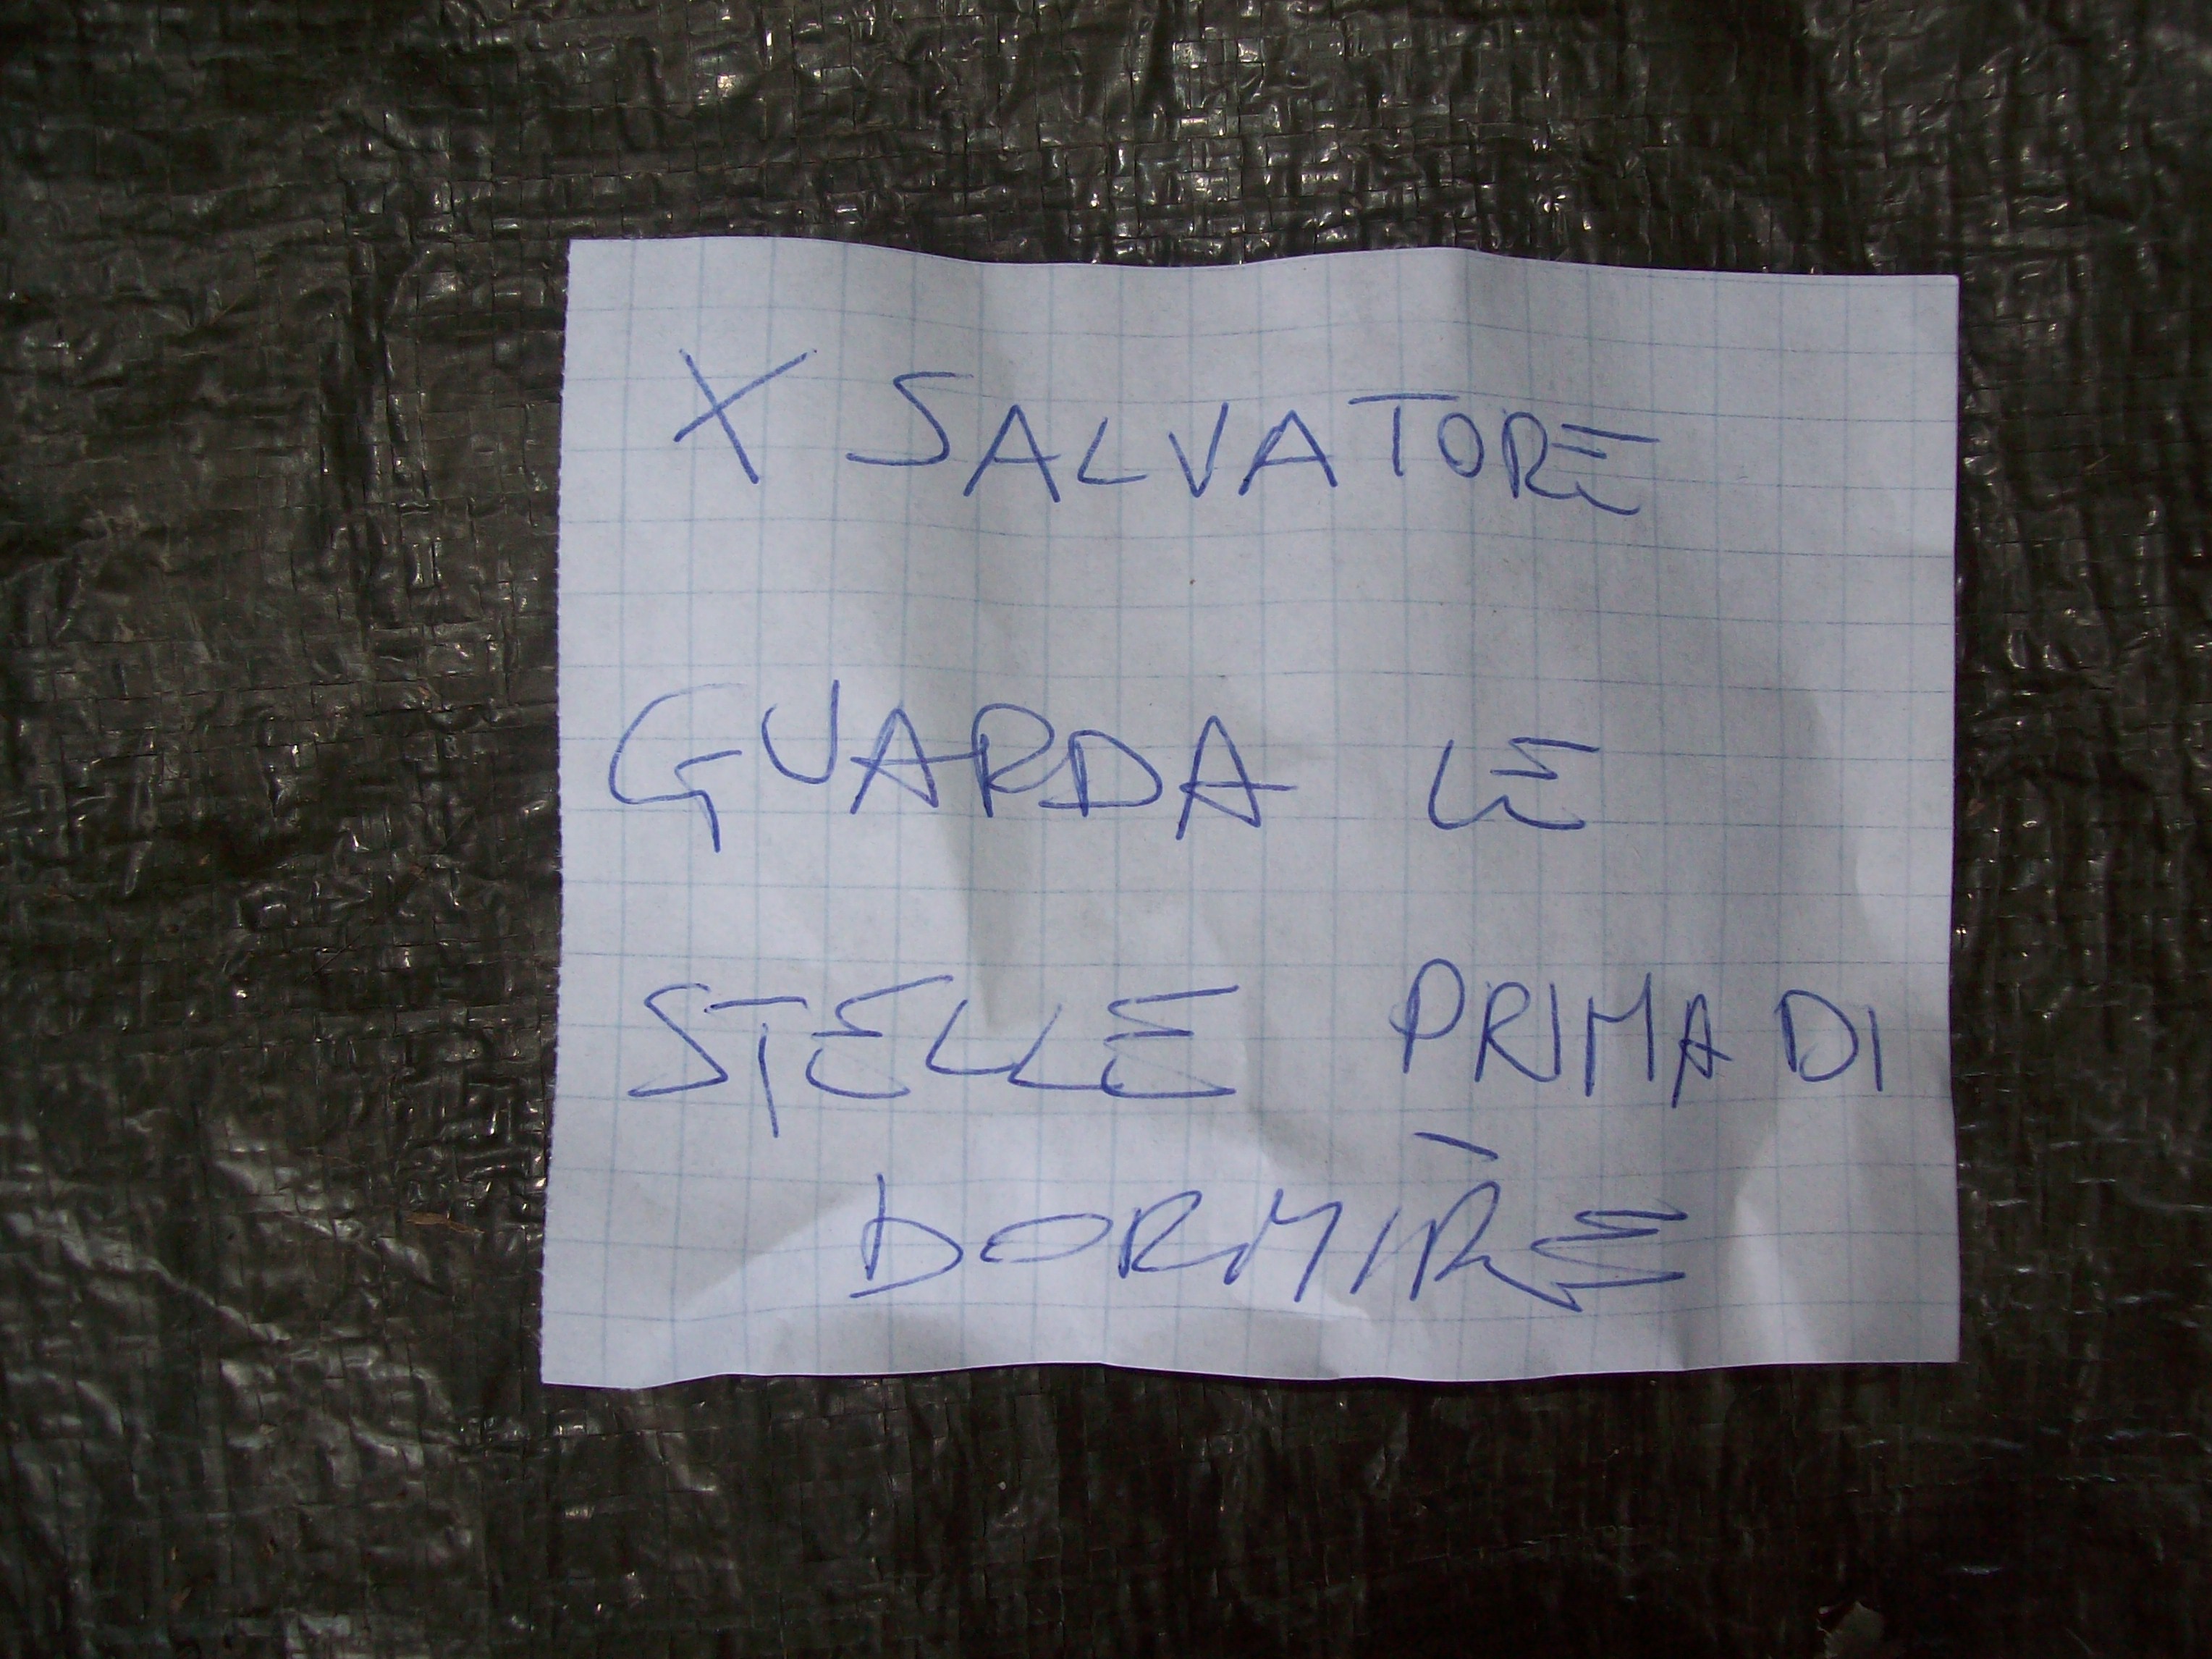 X SALVATORE
GUARDA LE
STELLE PRIMA DI
DORMIRE